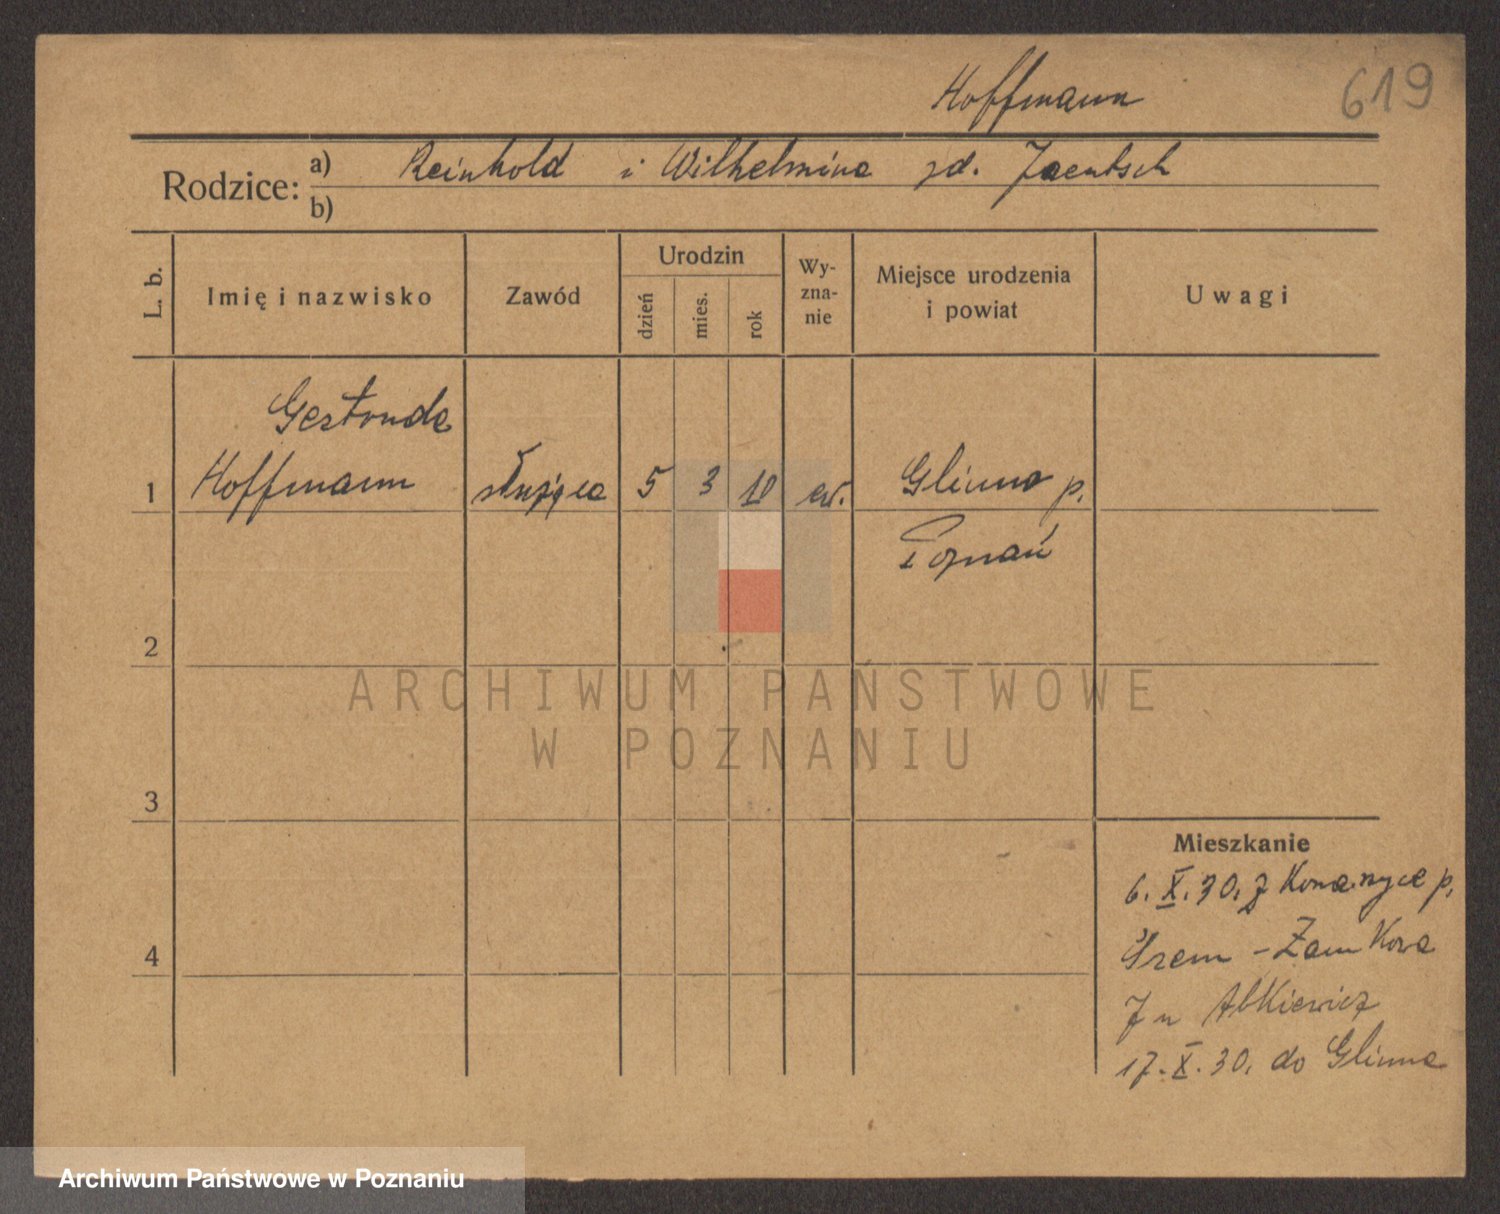 Hoffmann
619
Rodzice: a) Reinhold i Wilhelmina zd. Jaentsch
b)
L. b. Imię i nazwisko Zawód Urodzin dzień mies. rok Wy-zna-nie Miejsce urodzenia i powiat Uwagi
Gertruda
1 Hoffmann służąca 5 3 10 ew. Glinno p.
Poznań
2
ARCHIWUM PAŃSTWOWE
W POZNANIU
3
Mieszkanie
6. X. 30. z Konarzyce p.
4 Śrem - Zamkowa
7 u
17. X. 30. do Glinna
Archiwum Państwowe w Poznaniu